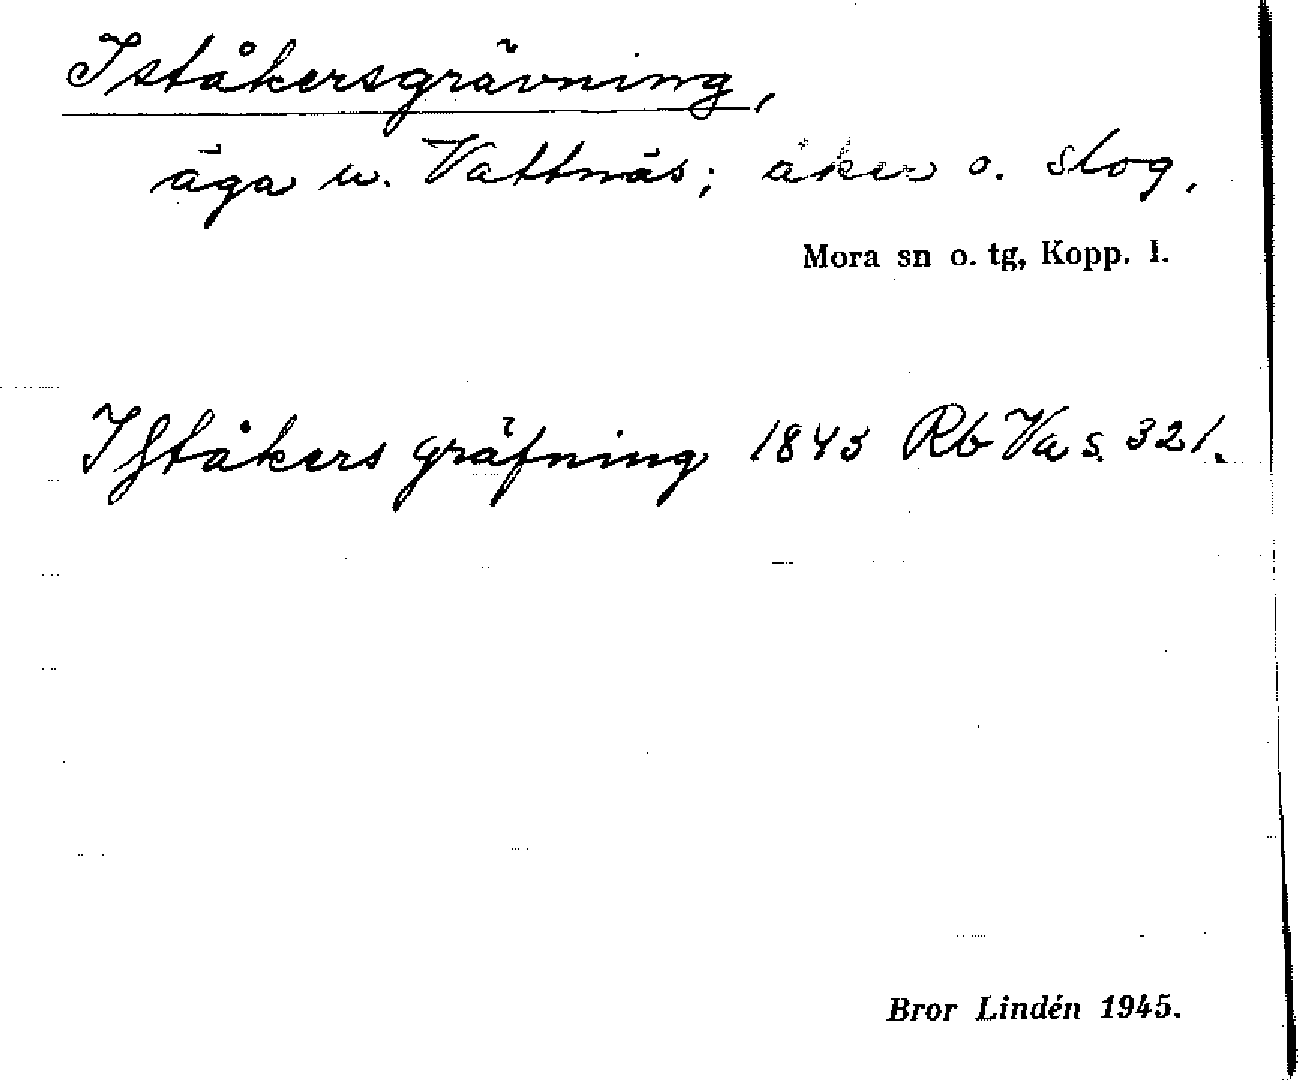 Iståkersgrävning,
äga u. Vattnäs; åker o. slog.
Mora sn o. tg, Kopp. l.
Iſtåkers gräfning 1843 Rb Va s. 321.
Bror Lindén 1945.